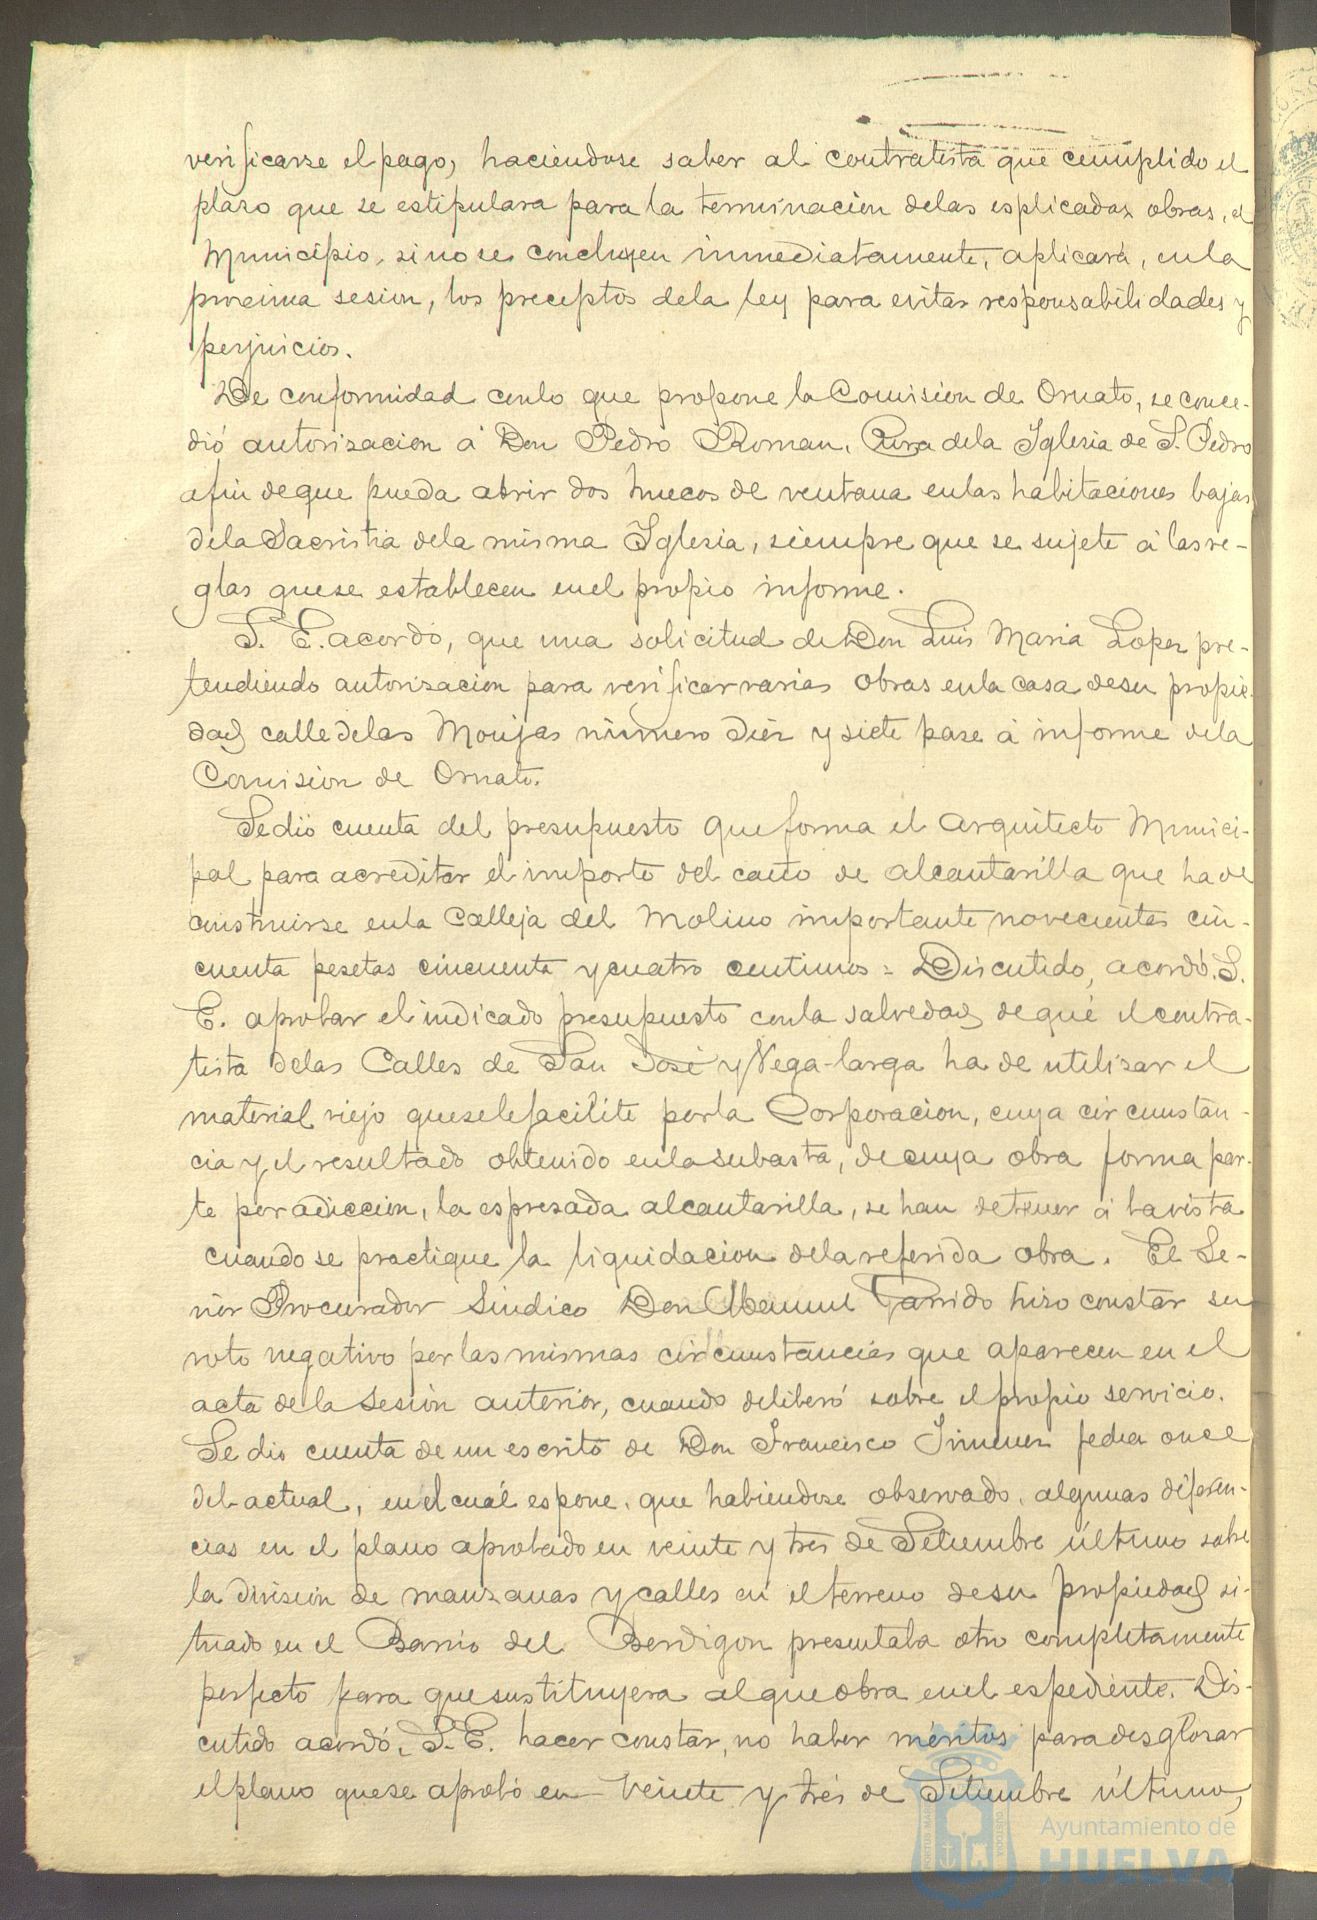 verificarse el pago, haciendose saber al contratista que cumplido el
plazo que se estipulara para la terminacion de las esplicadas obras, el
Municipio, si no se concluyen inmediatamente, aplicará, en la
procsima sesion, los preceptos de la ley para evitar responsabilidades y
perjuicios.
De conformidad con lo que propone la Comision de Ornato, se conce-
dió autorizacion á Don Pedro Roman, Cura de la Iglesia de S. Pedro
a fin de que pueda abrir dos huecos de ventana en las habitaciones bajas
de la Sacristia de la misma Iglesia, siempre que se sujete á las re-
glas que se establecen en el propio informe.
S. E. acordó, que una solicitud de Don Luis Maria Lopez pre-
tendiendo autorizacion para verificar varias obras en la casa de su propie-
dad calle de las Monjas número diez y siete pase á informe de la
Comision de Ornato.
Se dió cuenta del presupuesto que forma el Arquitecto Munici-
pal para acreditar el importe del caño de alcantarilla que ha de
construirse en la Calleja del Molino importante novecientas cin-
cuenta pesetas cincuenta y cuatro centimos = Discutido, acordó S.
E. aprobar el indicado presupuesto con la salvedad de que el contra-
tista de las Calles de San José y Vega-larga ha de utilizar el
material viejo que se le facilite por la Corporacion, cuya circunstan-
cia y el resultado obtenido en la subasta, de cuya obra forma par-
te por adiccion, la espresada alcantarilla, se han de tener á la vista
cuando se practique la liquidacion de la referida obra. El Se-
ñor Procurador Sindico Don Manuel Garrido hizo constar su
voto negativo por las mismas circunstancias que aparecen en el
acta de la sesion anterior, cuando deliberó sobre el propio servicio.
Se dio cuenta de un escrito de Don Francisco Jimenez fecha once
del actual, en el cual espone, que habiendose observado, algunas diferen-
cias en el plano aprobado en veinte y tres de Setiembre último sobre
la division de manzanas y calles en el terreno de su propiedad si-
tuado en el Barrio del Berdigon presentaba otro completamente
perfecto para que sustituyera al que obra en el espediente. Dis-
cutido acordó, S. E. hacer constar, no haber méritos para desglosar
el plano que se aprobó en veinte y tres de Setiembre último,
Ayuntamiento de
HUELVA